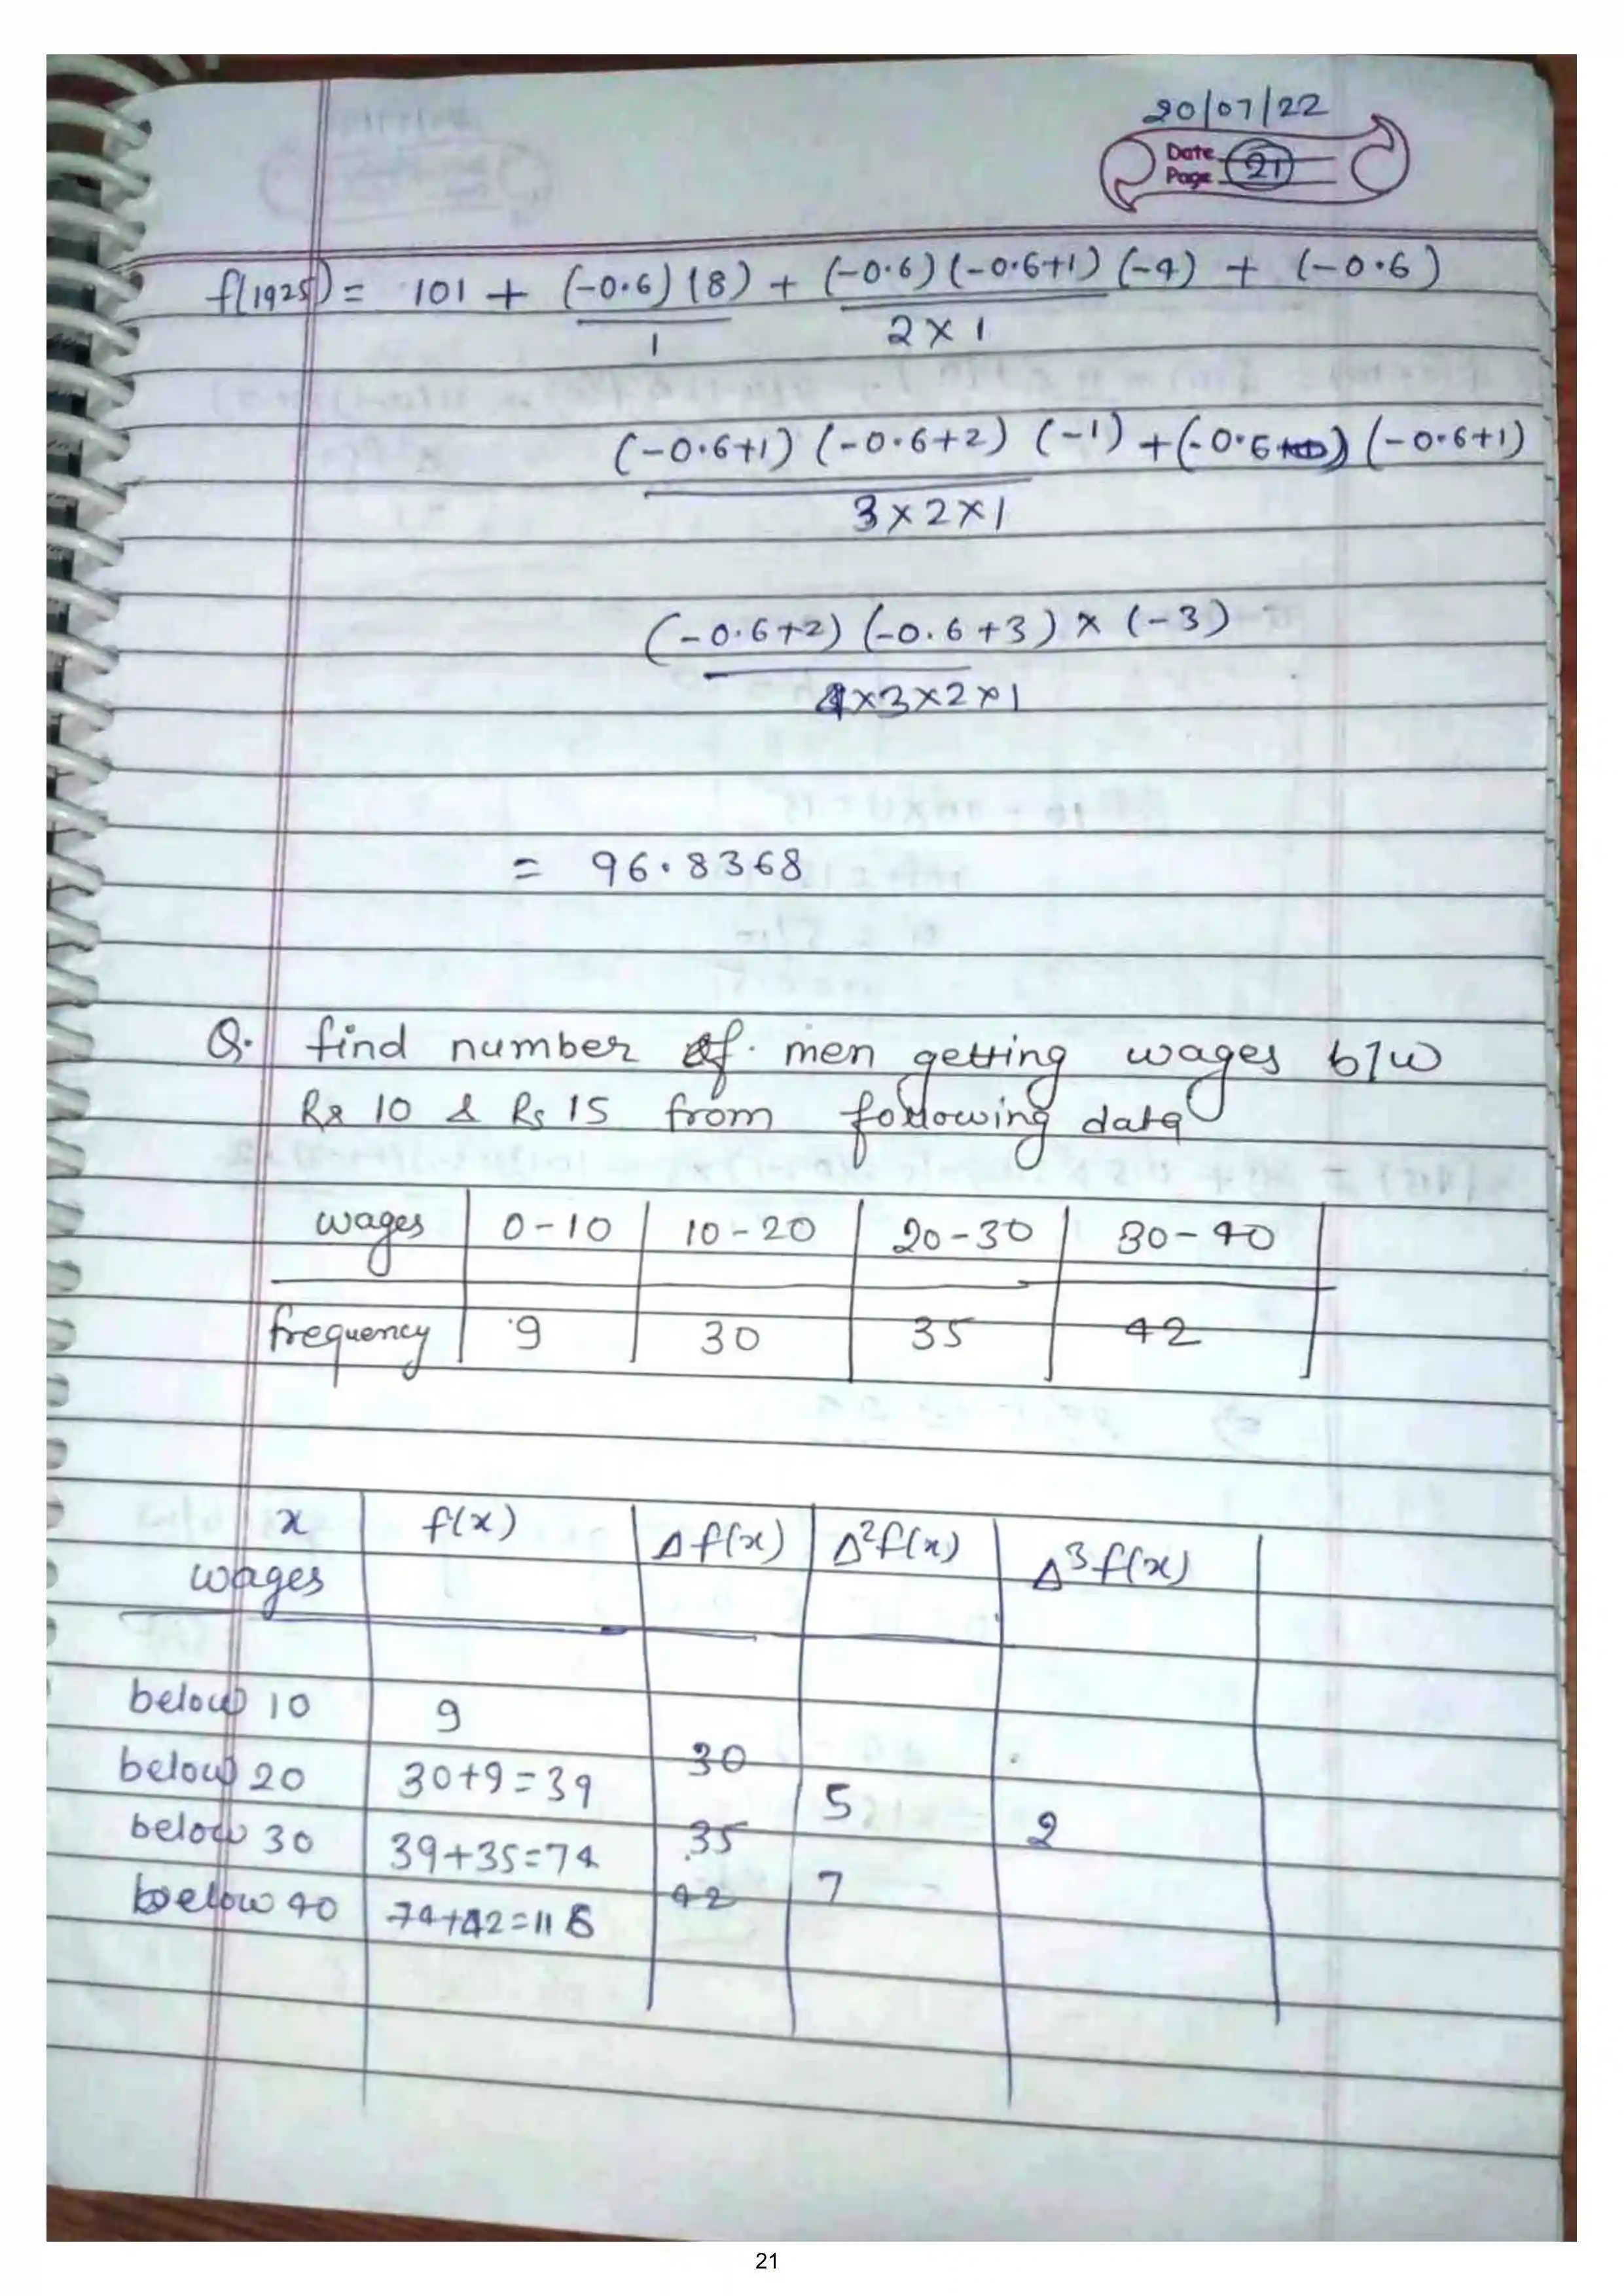 20/07/22
Date
Page 21
f(1925) = 101 + (-0.6)(8)/1 + (-0.6)(-0.6+1)(-4)/2×1 + (-0.6)
(-0.6+1)(-0.6+2)(-1)/3×2×1 + (-0.6)(-0.6+1)
(-0.6+2)(-0.6+3)×(-3)/4×3×2×1
= 96.8368
Q. find number of men getting wages b/w
Rs 10 & Rs 15 from following data
wages 0-10 10-20 20-30 30-40
frequency 9 30 35 42
x f(x) Δf(x) Δ²f(x) Δ³f(x)
wages
below 10 9
30
below 20 30+9=39 5
35 2
below 30 39+35=74 7
42
below 40 74+42=116
21